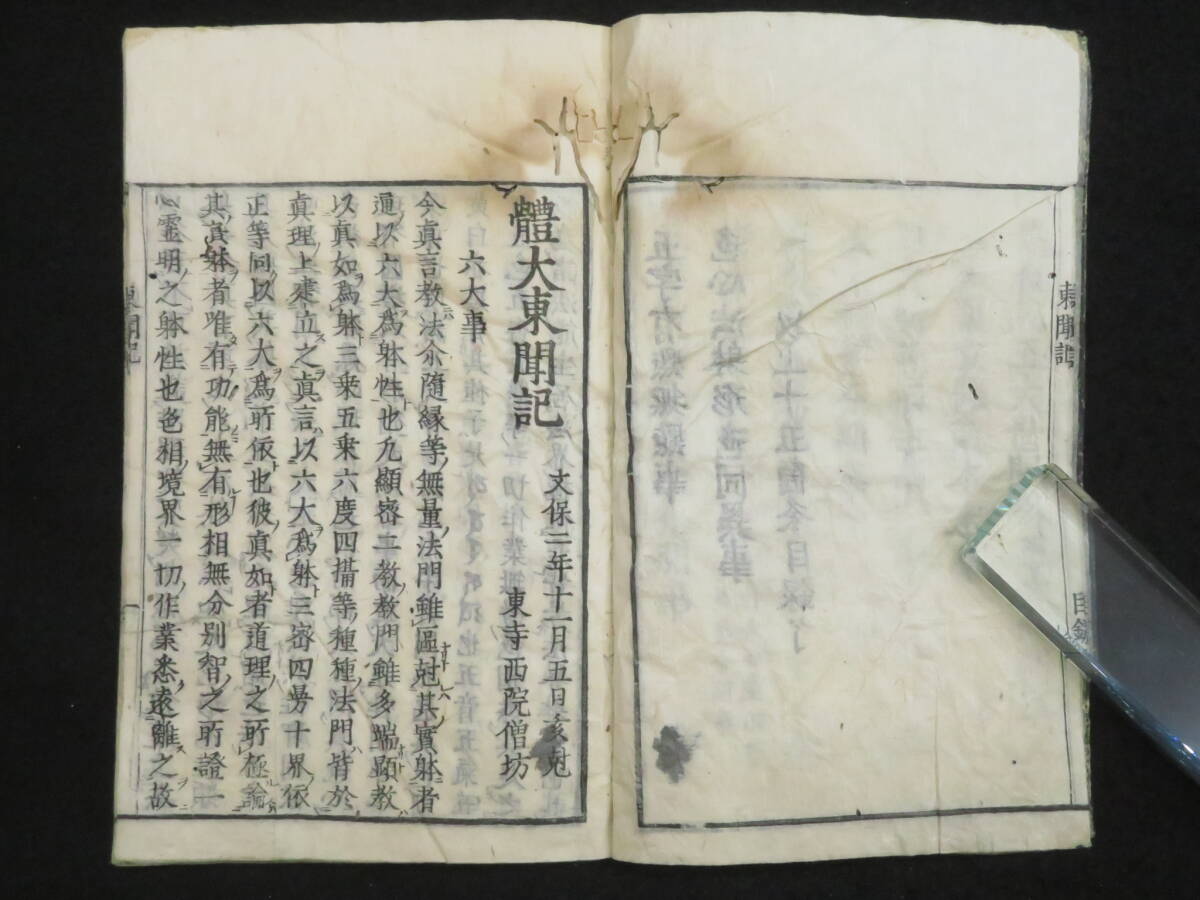 東聞記
目録
體大東聞記
文保二年十一月五日亥尅
東寺西院僧坊
六大事
今真言教法尒隨縁等無量法門雖區尅其實躰者
通以六大為躰性也凡顯密二教教門雖多端顯教
以真如為躰三乘五乘六度四攝等種種法門皆於
真理上建立之真言以六大為躰三密四曼十界依
正等同以六大為所依也彼真如者道理之所極論
其真躰者唯有功能無有形相無分別智之所證一
心靈明之躰性也色相境界一切作業悉遠離之故
東聞記